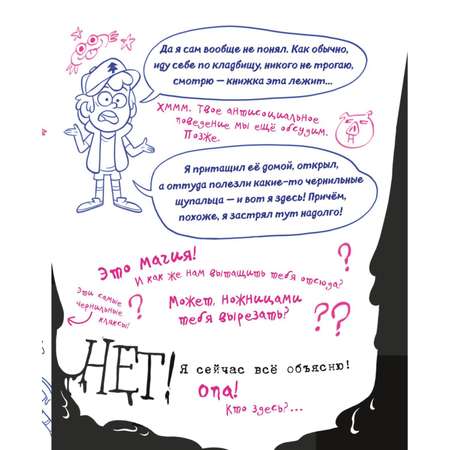 Да я сам вообще не понял. Как обычно,
иду себе по кладбищу, никого не трогаю,
смотрю — книжка эта лежит...
Хммм. Твое антисоциальное
поведение мы ещё обсудим.
Позже.
Я притащил её домой, открыл,
а оттуда полезли какие-то чернильные
щупальца — и вот я здесь! Причём,
похоже, я застрял тут надолго!
Это магия!
И как же нам вытащить тебя отсюда?
?
Эти самые
чернильные
кляксы!
?
Может, ножницами
тебя вырезать?
??
НЕТ!
Я сейчас всё объясню!
Опа!
Кто здесь?...